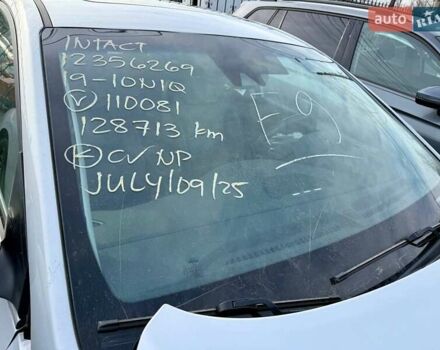 INTACT
12356269
19-IONIQ
Ⓥ 110081
128713 km
Ⓚ CV NP
JULY/09/25
F9
auto
RIA